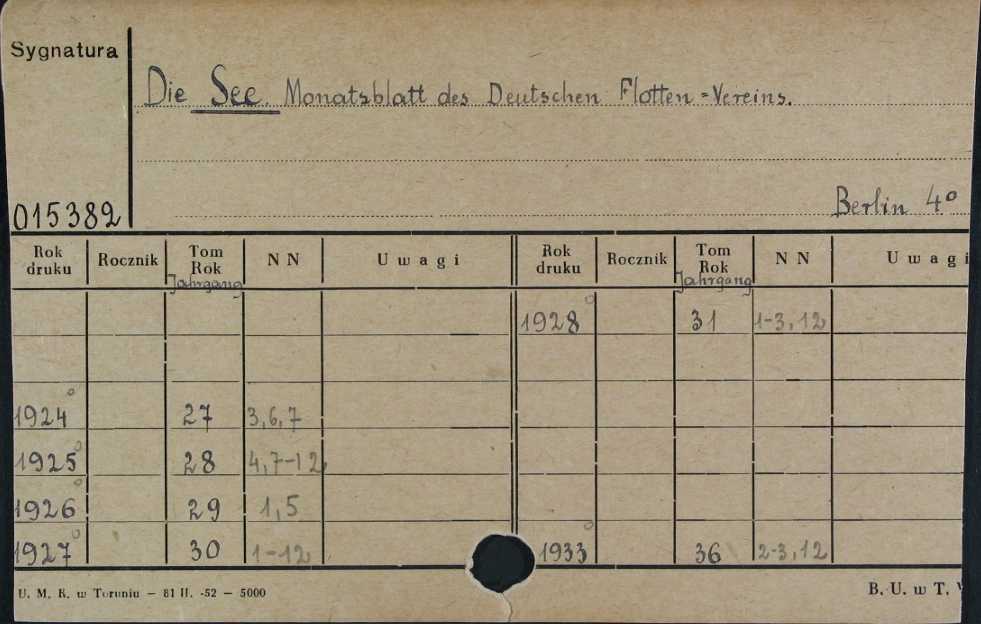 Sygnatura
Die See. Monatsblatt des Deutschen Flotten=Vereins.
Berlin 4°
015382
Rok druku Rocznik Tom Rok Jahrgang NN Uwagi Rok druku Rocznik Tom Rok Jahrgang NN Uwagi
1928° 31 1-3, 12
1924° 27 3, 6, 7
1925° 28 4, 7-12
1926° 29 1, 5
1927° 30 1-12 1933° 36 2-3, 12
U. M. K. w Toruniu — 81 II. -52 — 5000 B. U. w T.